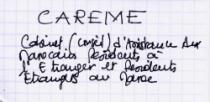 CAREME
Cabinet (conseil) d'Assistance Aux
Marocains Résidents à
l'Etranger et Résidents
Etrangers au Maroc